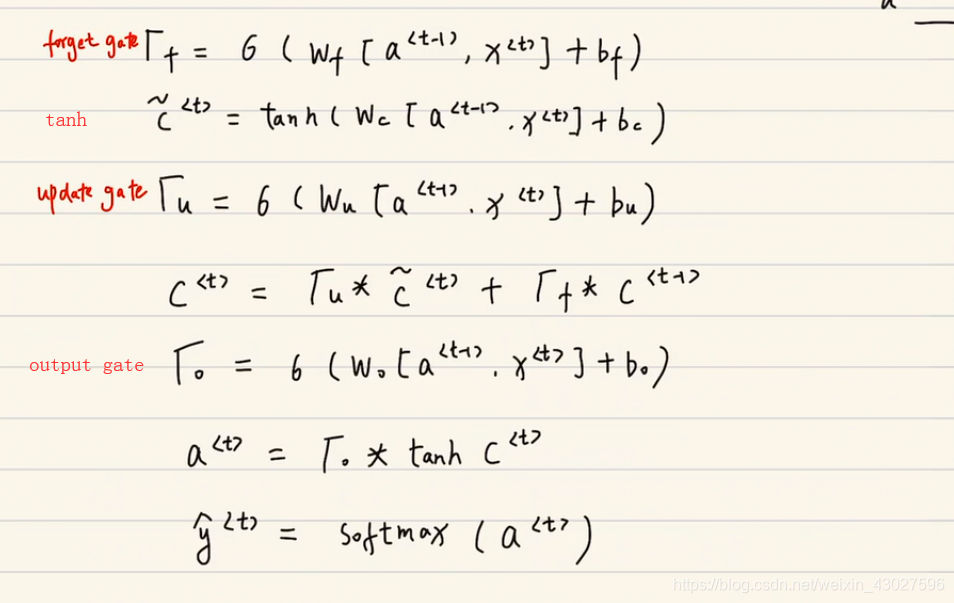 forget gate Γf = σ ( Wf [ a<t-1>, x<t> ] + bf )
tanh c̃<t> = tanh ( Wc [ a<t-1>. x<t> ] + bc )
update gate Γu = σ ( Wu [ a<t-1>. x<t> ] + bu )
c<t> = Γu * c̃<t> + Γf * c<t-1>
output gate Γo = σ ( Wo [ a<t-1>. x<t> ] + bo )
a<t> = Γo * tanh c<t>
ŷ<t> = softmax ( a<t> )
https://blog.csdn.net/weixin_43027596